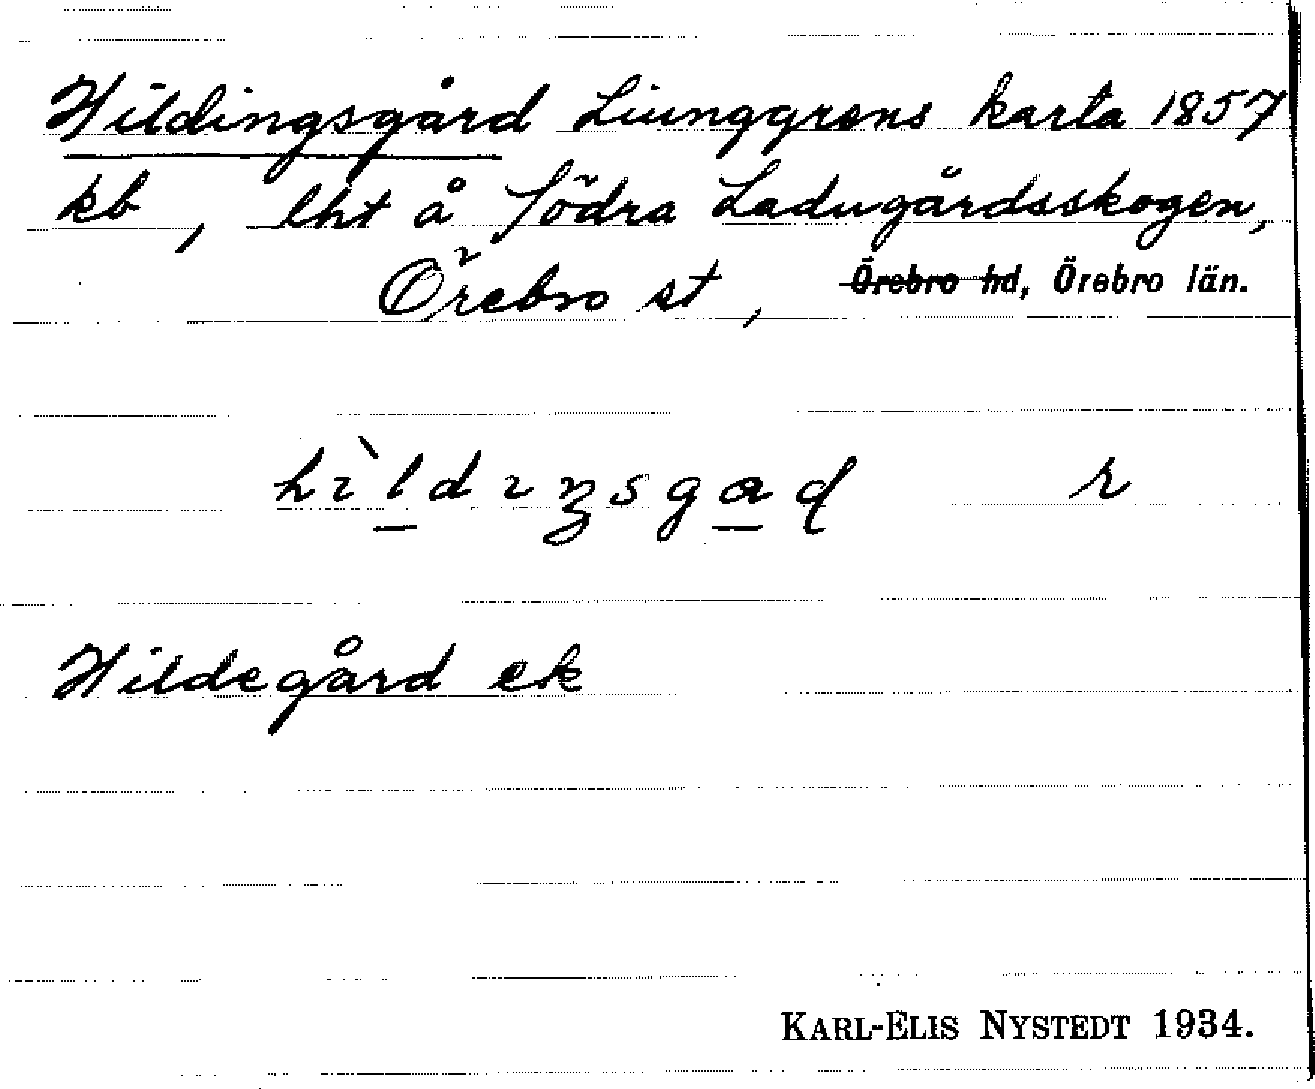 Hildingsgård Liunggrens karta 1857
kb, lht å Södra Ladugårdsskogen,
Örebro st, Örebro hd, Örebro län.
hìldıŋsgaḍ r
Hildegård ek
KARL-ELIS NYSTEDT 1934.